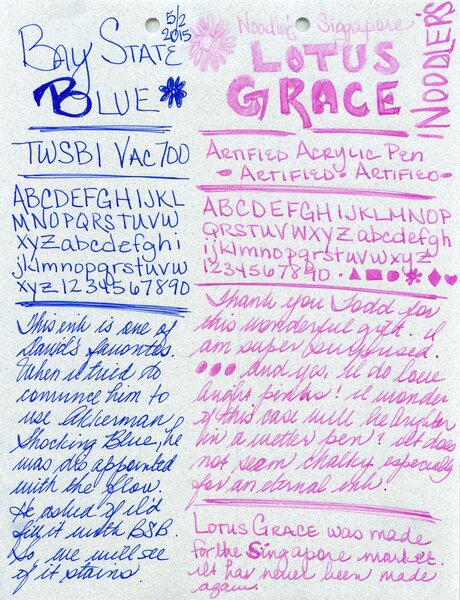 5/2
2015
BAY STATE
BLUE
TWSBI VAC 700
ABCDEFGHIJKL
MNOPQRSTUVW
XYZ abcdefghi
jklmnopqrstuvw
xyz 1234567890
This ink is one of
David's favorites.
When I tried to
convince him to
use Akkerman
Shocking Blue, he
was disappointed
with the flow.
He asked if I'd
fill it with BSB.
So, we will see
if it stains.
Noodler's Singapore
LOTUS
GRACE
NOODLER'S
ARTIFIED ACRYLIC PEN
- ARTIFIED - ARTIFIED -
ABCDEFGHIJKLMNOP
QRSTUVWXYZ abcdefgh
ijklmnopqrstuvwxyz
1234567890
Thank you Todd for
this wonderful gift. I
am super surprised.
And yes, I do love
bright pinks! I wonder
if this case will be brighter
in a wetter pen? It does
not seem chalky especially
for an eternal ink.
LOTUS GRACE was made
for the Singapore market.
It has never been made
again.